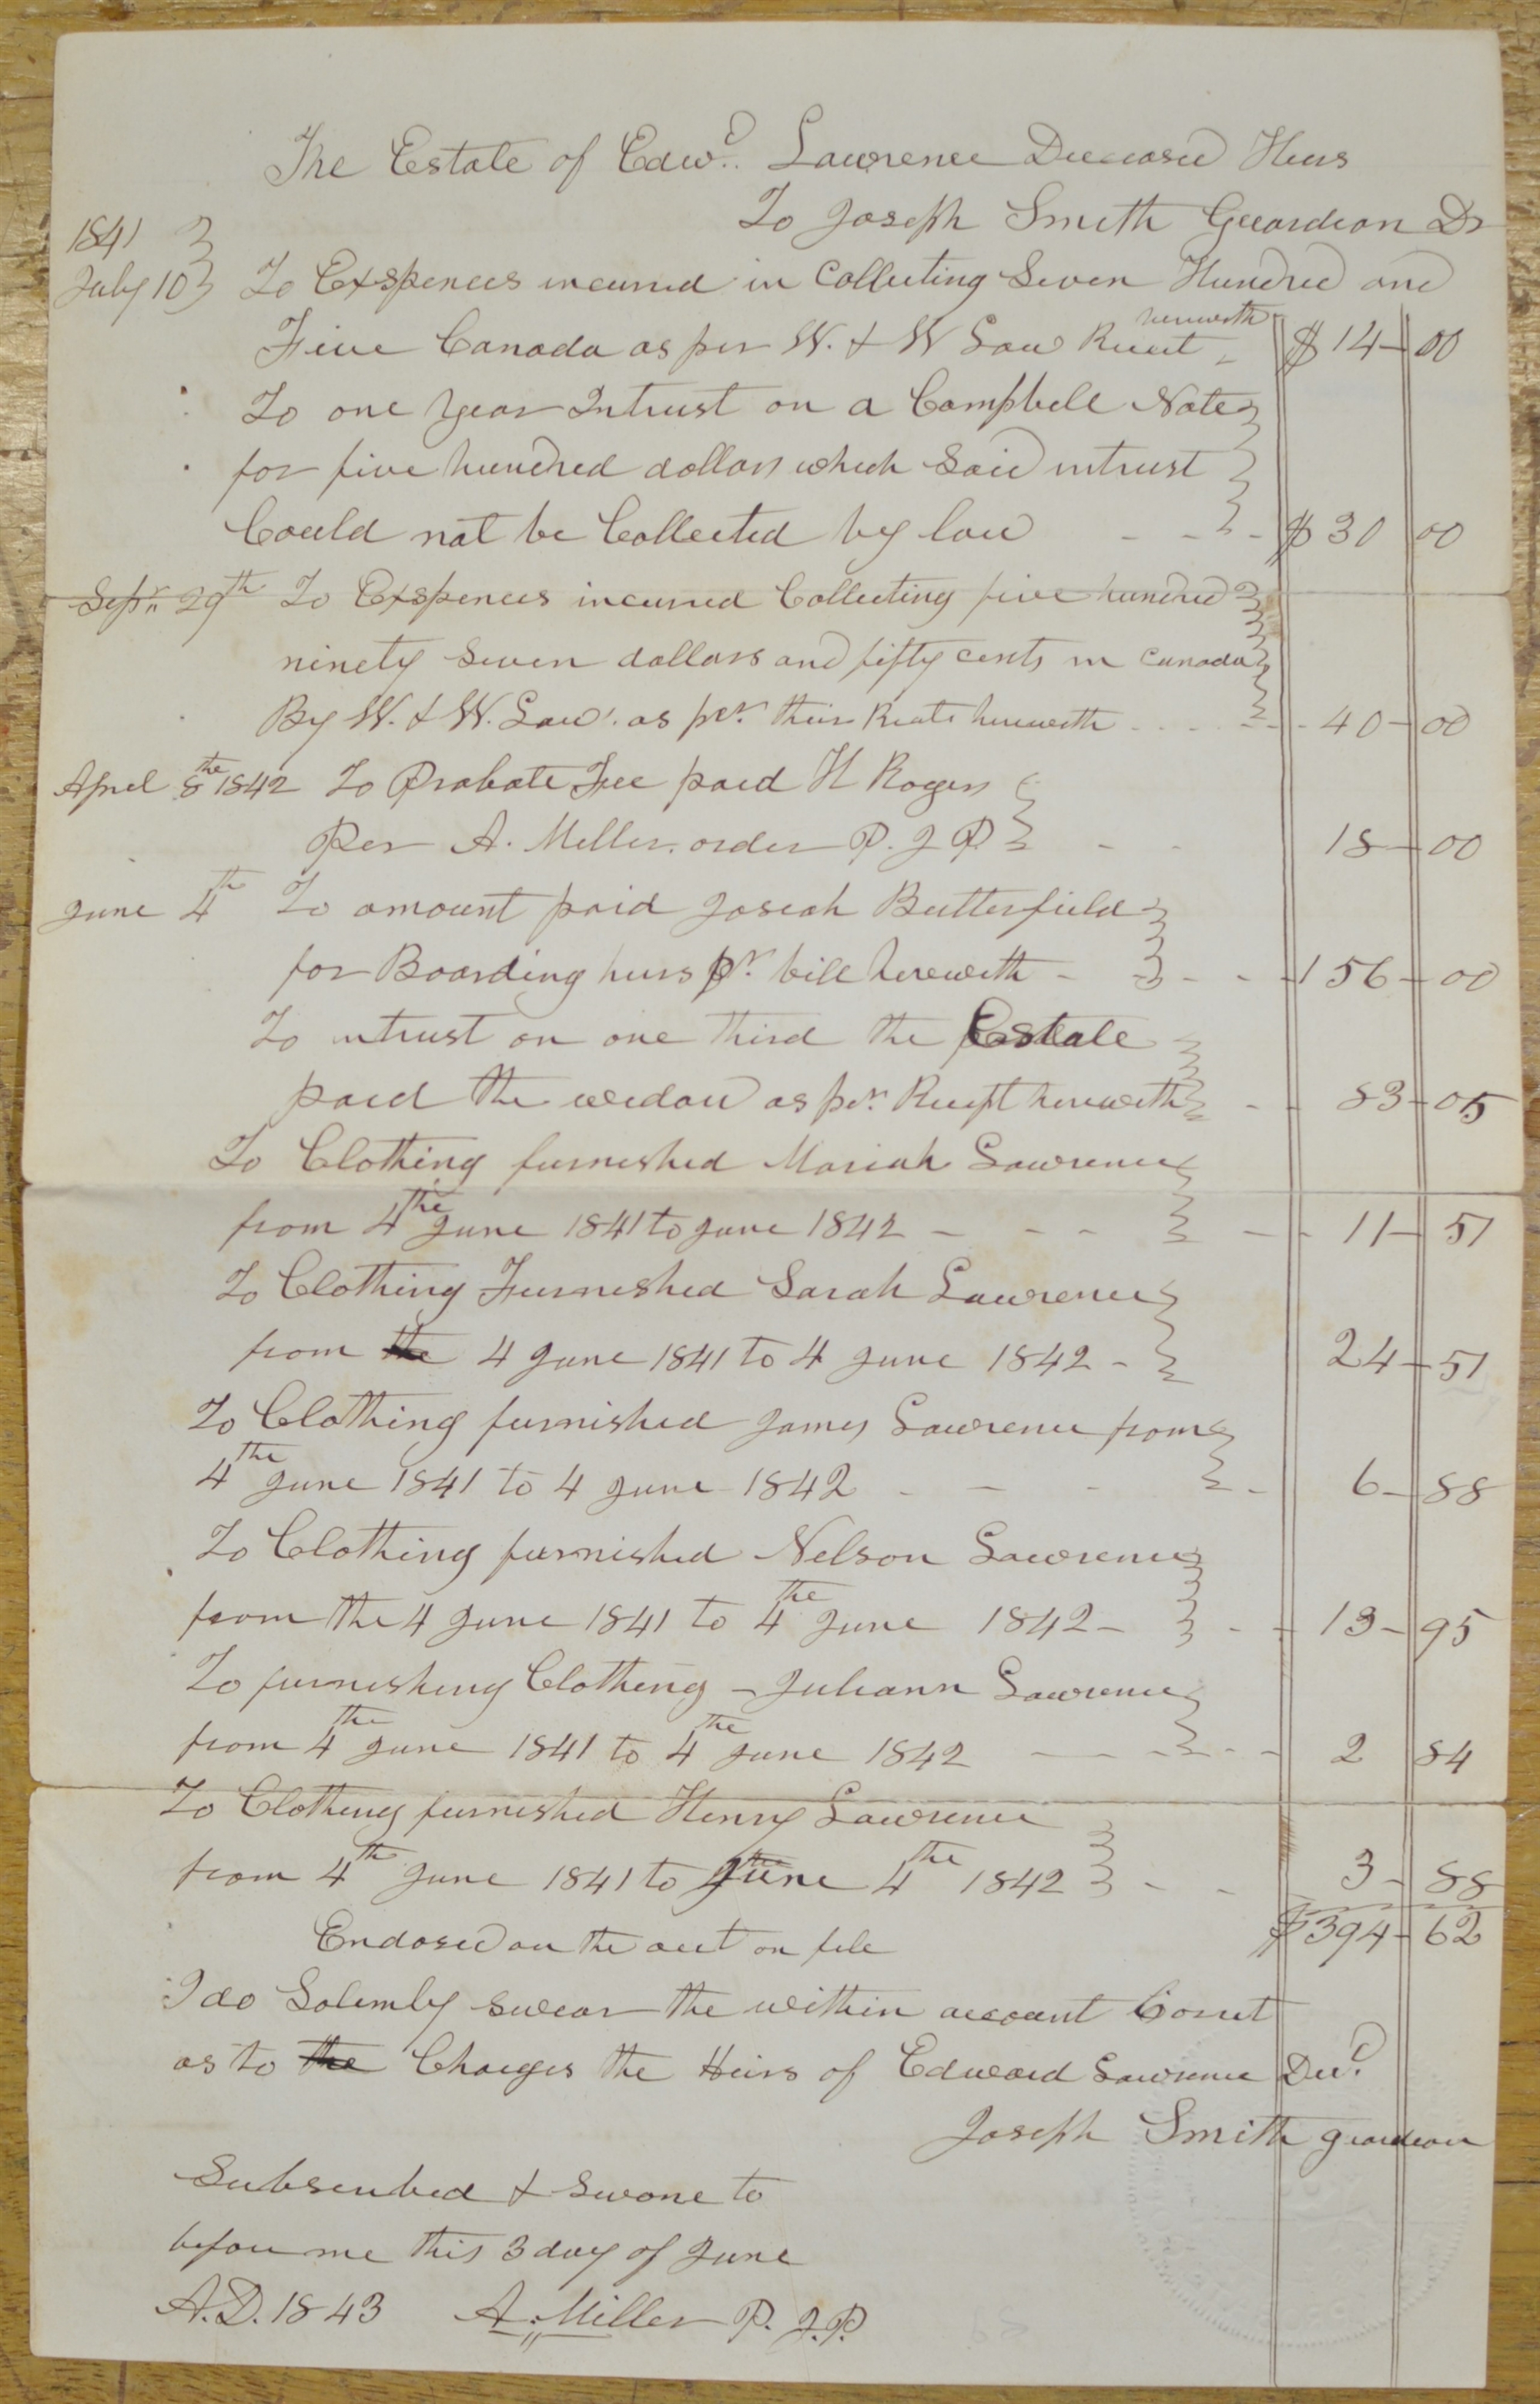 The Estate of Edwd. Lawrence Deceased Heirs
To Joseph Smith Guardian Dr
1841
July 10 To Exspences incurred in Collecting Seven Hundred and
herewith
Five Canada as per W. & W Law Receit $ 14 00
To one year Intrust on a Campbell Note
for five hundred dollars which Said intrust
Could not be Collected by law $ 30 00
Sept. 29th To Exspences incurred Collecting five hundred
ninety Seven dollars and fifty cents in Canada
By W. & W. Law. as per. their Reats herewith 40 00
April 8the 1842 To Probate Fee paid H Rogers
Per A. Miller. order P. J P 18 00
June 4th To amount paid Josiah Butterfield
for Boarding heirs pr. bill herewith 156 00
To intrust on one third the Estate
paid the widow as per. Recept herewith 83 05
To Clothing furnished Mariah Lawrence
from 4the June 1841 to June 1842 11 51
To Clothing Furnished Sarah Lawrence
from the 4 June 1841 to 4 June 1842 24 51
To Clothing furnished James Lawrence from
4the June 1841 to 4 June 1842 6 88
To Clothing furnished Nelson Lawrence
from the 4 June 1841 to 4the June 1842 13 95
To furnishing Clothing Juliann Lawrence
from 4the June 1841 to 4the June 1842 2 84
To Clothing furnished Henry Lawrence
from 4th June 1841 to June 4the 1842 3 88
Endosed on the acct on file $394 62
I do Solemly swear the within account Corret
as to the Charges the Heirs of Edward Lawrence Decd.
Joseph Smith guardian
Subscribed & Swone to
before me this 3 day of June
A.D. 1843 A. Miller P. J.P.